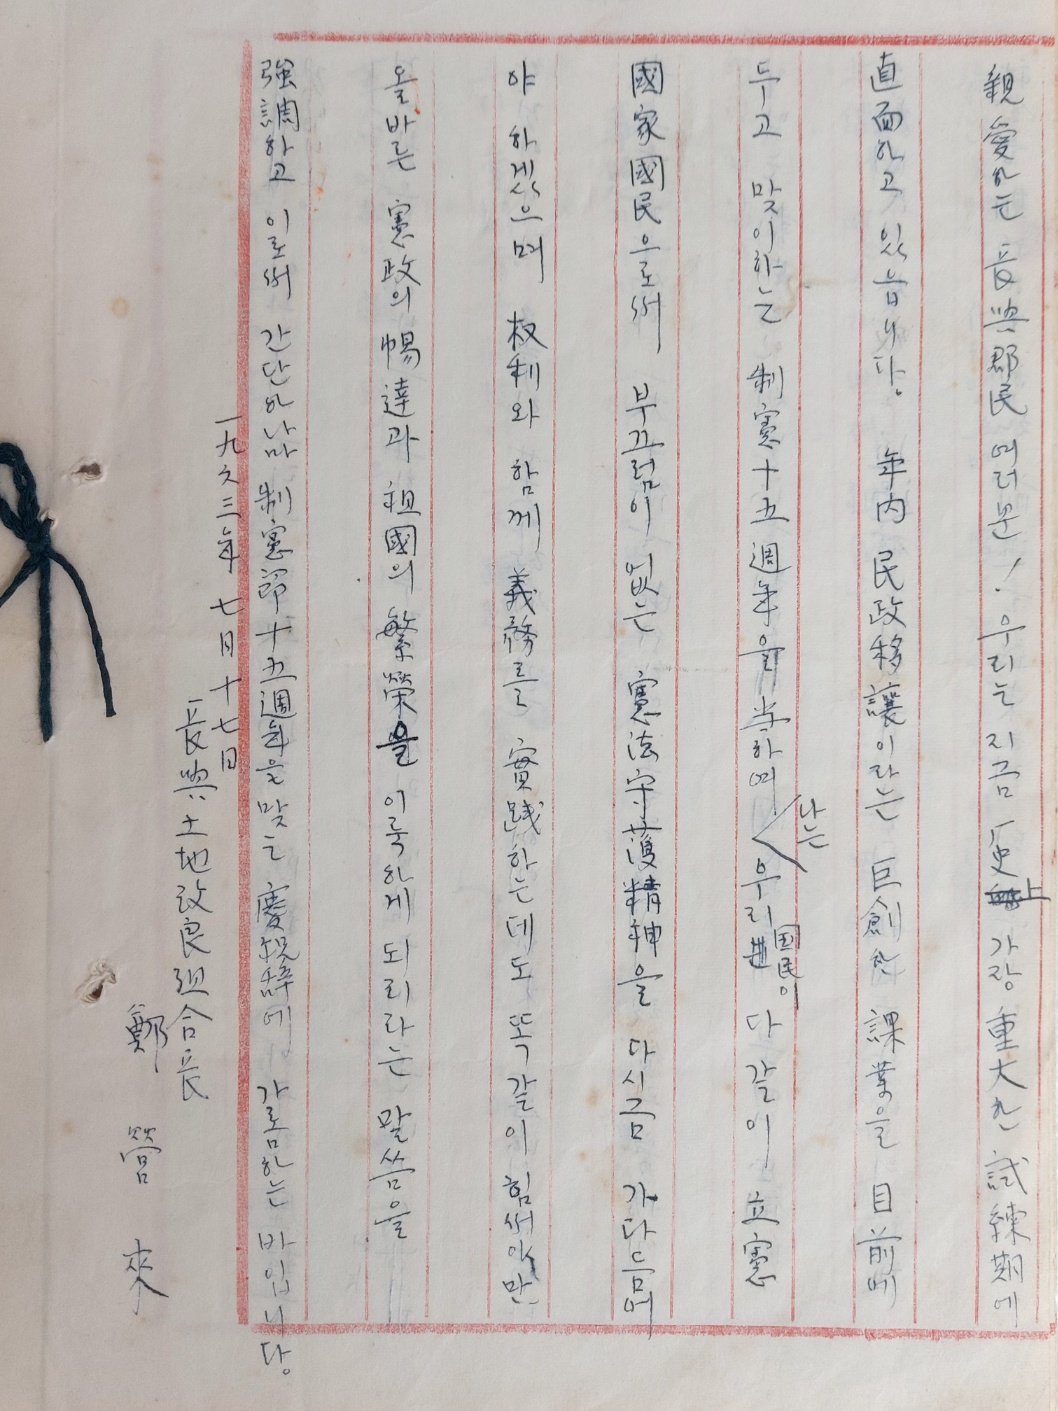 親愛하는 長興郡民 여러분! 우리는 지금 歷史上 가장 重大한 試練期에
直面하고 있읍니다. 年内 民政移讓이라는 巨創한 課業을 目前에
두고 맞이하는 制憲十五週年을 当하여 나는 우리 国民이 다 갈이 立憲
國家國民으로써 부끄럼이 없는 憲法守護精神을 다시금 가다듬어
야 하겠으며 权利와 함께 義務를 實践하는데도 똑같이 힘써야만
올바른 憲政의 暢達과 祖國의 繁榮을 이룩하게 되리라는 말씀을
強調하고 이로써 간단하나마 制憲節十五週年을 맞는 慶祝辞에 가름하는 바입니다.
一九六三年 七月十七日
長興土地改良組合長
鄭 營 來